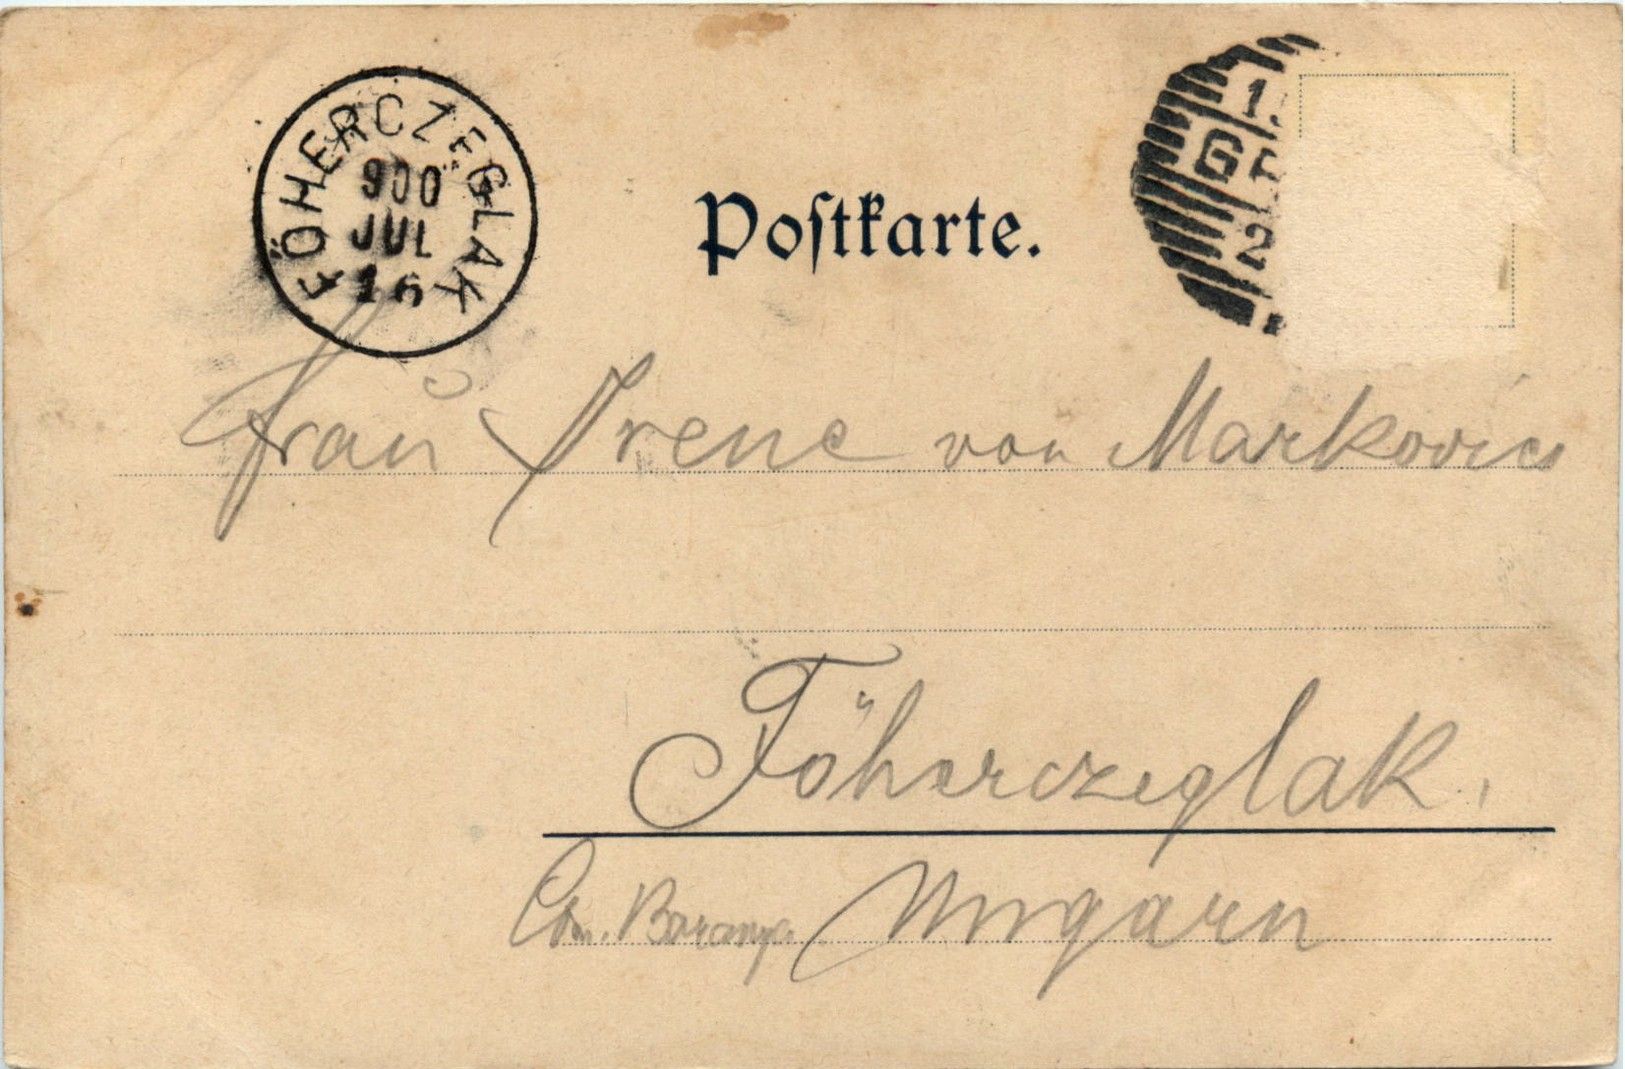 FÖHERCZEGLAK
900
JUL
16
Postkarte.
1.
G
2
Frau Irene von Markovics
Föherczeglak.
Com. Baranya Ungarn